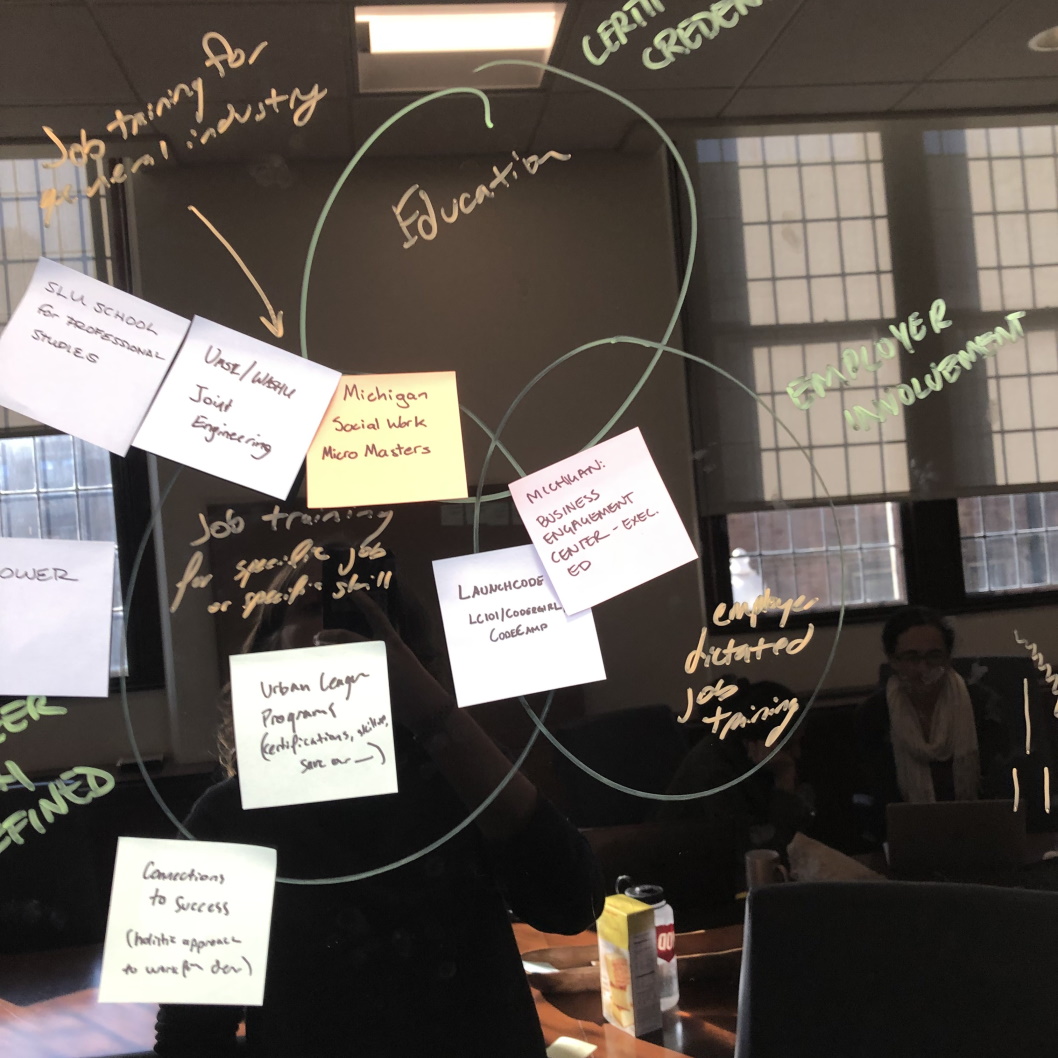 CREDEN
Job training for
general industry
Education
EMPLOYER
INVOLVEMENT
SLU SCHOOL
for PROFESSIONAL
STUDIES
UMSL/WASHU
Joint
Engineering
Michigan
Social Work
Micro Masters
MICHIGAN:
BUSINESS
ENGAGEMENT
CENTER - EXEC.
ED
Job training
for specific job
or specific skill
OWER
LAUNCHCODE
LC101/CODERGIRL
CODECAMP
employer
dictated
job
training
Urban League
Programs
(certifications, skillup,
save our —)
EFINED
Connections
to Success
(holistic approach
to workfor dev)